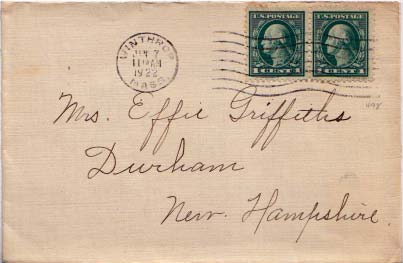 U.S. POSTAGE U.S. POSTAGE
1 CENT 1 1 CENT 1
WINTHROP
7
11 AM
1922
MASS.
Mrs. Effie Griffiths
Durham
New Hampshire.